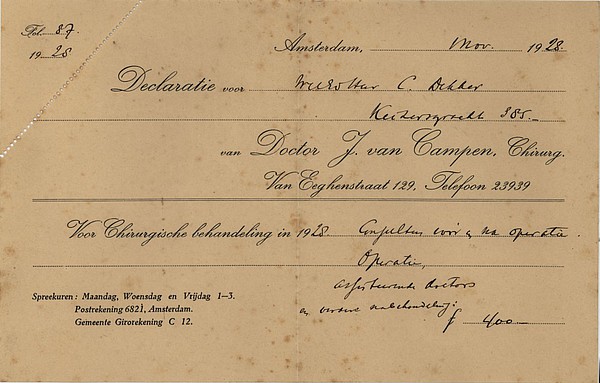 Fol. 87.
1928
Amsterdam, Nov. 1928.
Declaratie voor C. Dekker
Keizersgracht 385.-
van Doctor J. van Campen, Chirurg.
Van Eeghenstraat 129, Telefoon 23939
Voor Chirurgische behandeling in 1928. Consulten vóór en na operatie.
Operatie,
assisteerende doctors
en verdere nabehandeling:
f 400 —
Spreekuren: Maandag, Woensdag en Vrijdag 1—3.
Postrekening 6821, Amsterdam.
Gemeente Girorekening C 12.